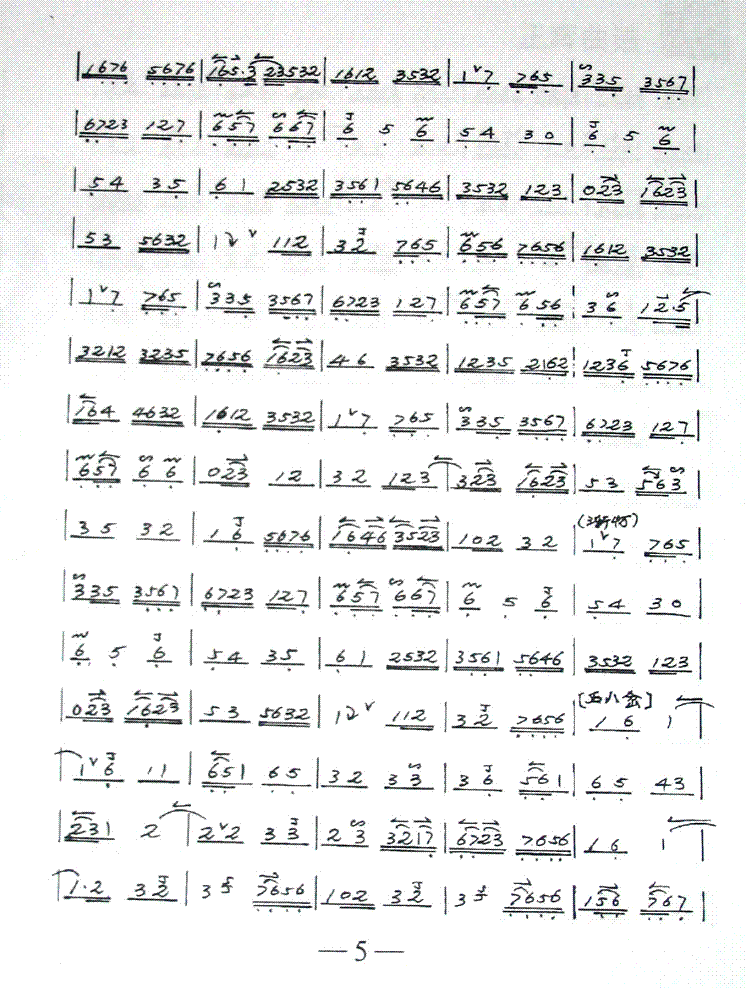 |1676 5676|165.3 23532|1612 3532|1ˇ7 765|335 3567|
|6723 127|657 667|6 5 6|54 30|6 5 6|
|54 35|61 2532|3561 5646|3532 123|023 1623|
|53 5632|12ˇ 112|32 765|656 7656|1612 3532|
|1ˇ7 765|335 3567|6723 127|657 656|36 125|
|3212 3235|7656 1623|46 3532|1235 2162|1236 5676|
|164 4632|1612 3532|1ˇ7 765|335 3567|6723 127|
|657 66|023 12|32 123|323 1623|53 563|
|35 32|16 5676|1646 3523|102 32|1ˇ7 765|
|335 3567|6723 127|657 667|6 5 6|54 30|
|6 5 6|54 35|61 2532|3561 5646|3532 123|
|023 1623|53 5632|12ˇ 112|32 7656|16 1|
|1ˇ6 11|651 65|32 33|36 561|65 43|
|231 2|2ˇ2 33|23 3217|6723 7656|16 1|
|1.2 32|35 7656|102 32|35 7656|156 767|
—5—